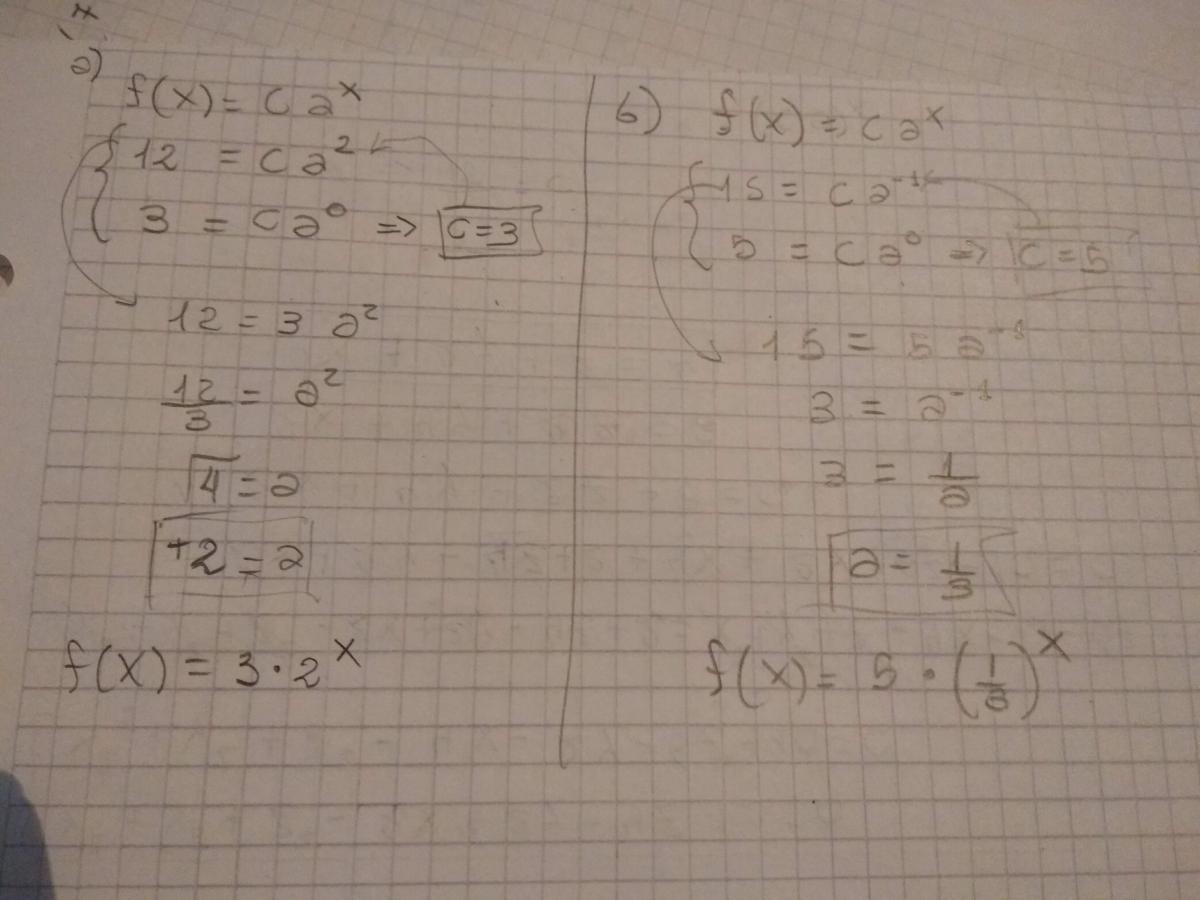 7
a)
f(x) = c a^x
{ 12 = c a²
3 = c a⁰ => c=3
12 = 3 a²
12/3 = a²
√4 = a
+2 = a
f(x) = 3 · 2^x
b) f(x) = c a^x
{ 15 = c a⁻¹
5 = c a⁰ => c = 5
15 = 5 a⁻¹
3 = a⁻¹
3 = 1/a
a = 1/3
f(x) = 5 · (1/3)^x